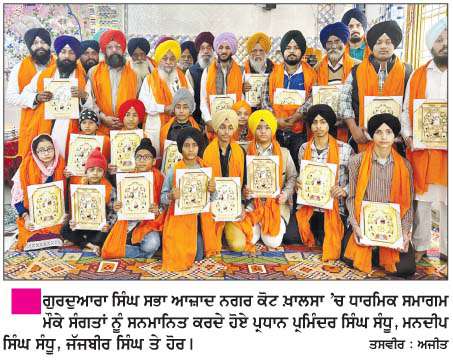 ਗੁਰਦੁਆਰਾ ਸਿੰਘ ਸਭਾ ਆਜ਼ਾਦ ਨਗਰ ਕੋਟ ਖ਼ਾਲਸਾ ’ਚ ਧਾਰਮਿਕ ਸਮਾਗਮ
ਮੌਕੇ ਸੰਗਤਾਂ ਨੂੰ ਸਨਮਾਨਿਤ ਕਰਦੇ ਹੋਏ ਪ੍ਰਧਾਨ ਪ੍ਰਮਿੰਦਰ ਸਿੰਘ ਸੰਧੂ, ਮਨਦੀਪ
ਸਿੰਘ ਸੰਧੂ, ਜੱਜਬੀਰ ਸਿੰਘ ਤੇ ਹੋਰ। ਤਸਵੀਰ : ਅਜੀਤ